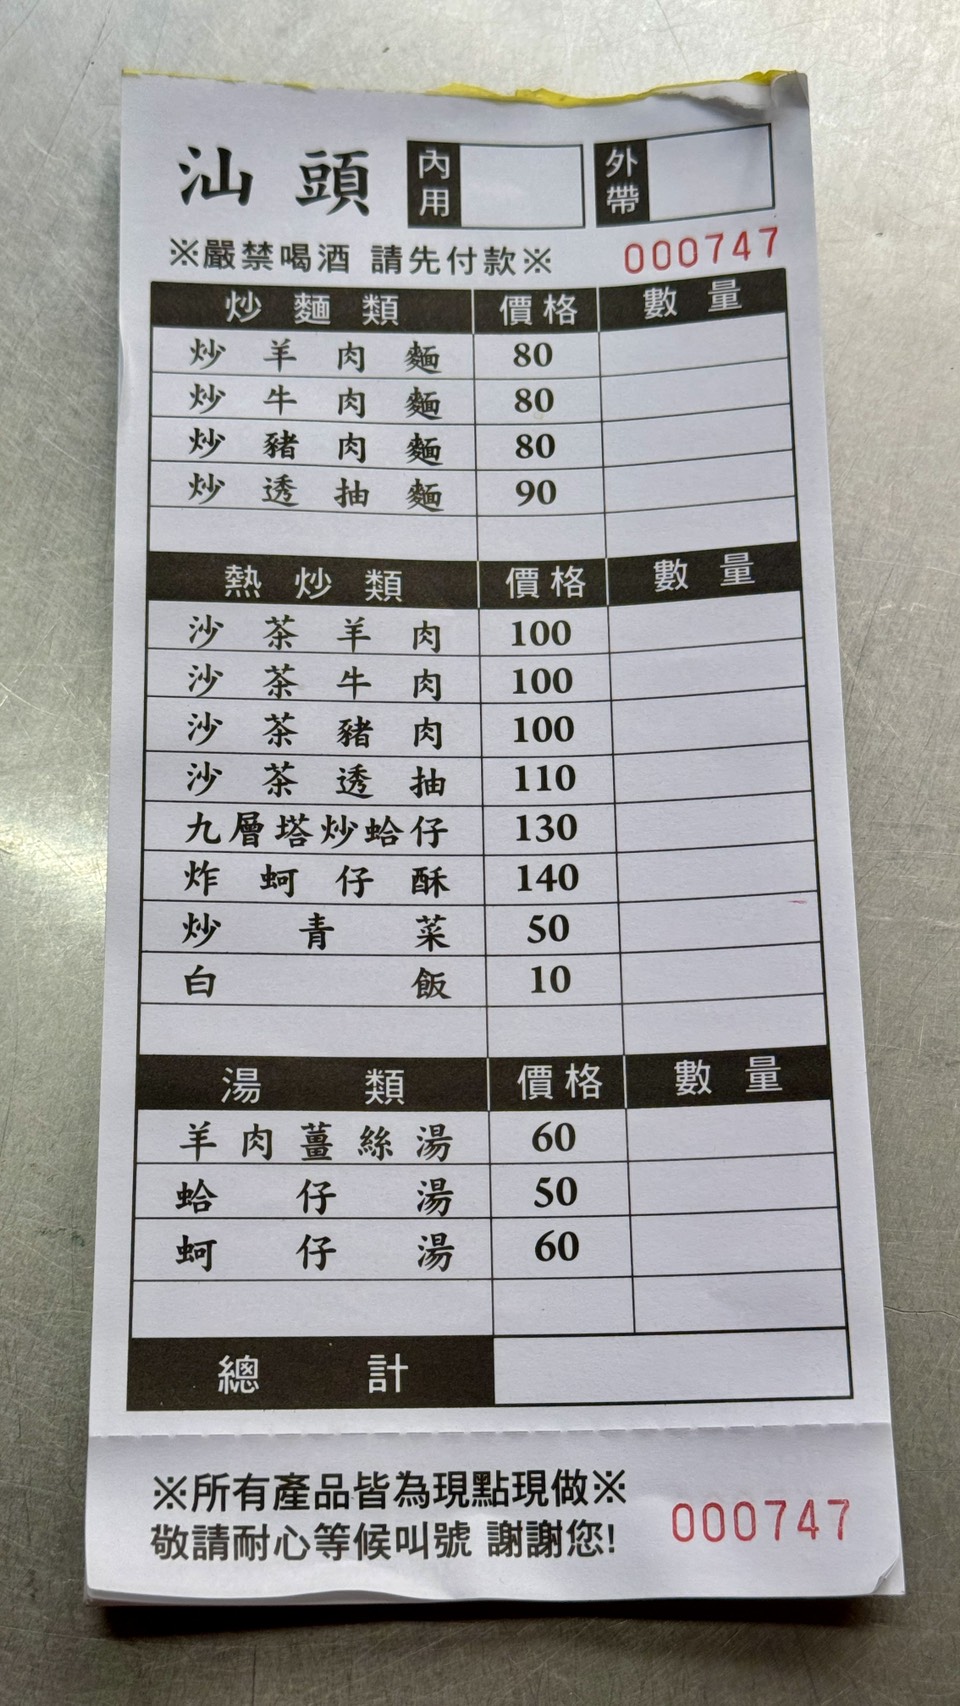 汕頭 內用 外帶
※嚴禁喝酒 請先付款※ 000747
炒麵類 價格 數量
炒羊肉麵 80
炒牛肉麵 80
炒豬肉麵 80
炒透抽麵 90
熱炒類 價格 數量
沙茶羊肉 100
沙茶牛肉 100
沙茶豬肉 100
沙茶透抽 110
九層塔炒蛤仔 130
炸蚵仔酥 140
炒青菜 50
白飯 10
湯類 價格 數量
羊肉薑絲湯 60
蛤仔湯 50
蚵仔湯 60
總計
※所有產品皆為現點現做※
敬請耐心等候叫號 謝謝您! 000747